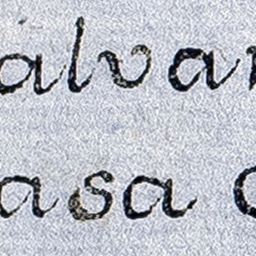 alvar
asa